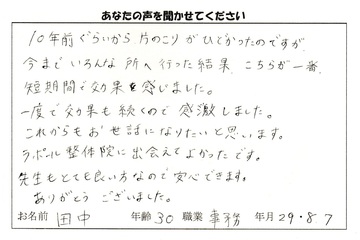 あなたの声を聞かせてください
10年前ぐらいから 片のこりがひどかったのですが
今までいろんな所へ行った結果、こちらが一番
短期間で効果を感じました。
一度で効果も続くので感激しました。
これからもお世話になりたいと思います。
ラポール整体院に出会えてよかったです。
先生もとても良い方なので安心できます。
ありがとうございました。
お名前 田中 年齢 30 職業 事務 年月 29.8 7